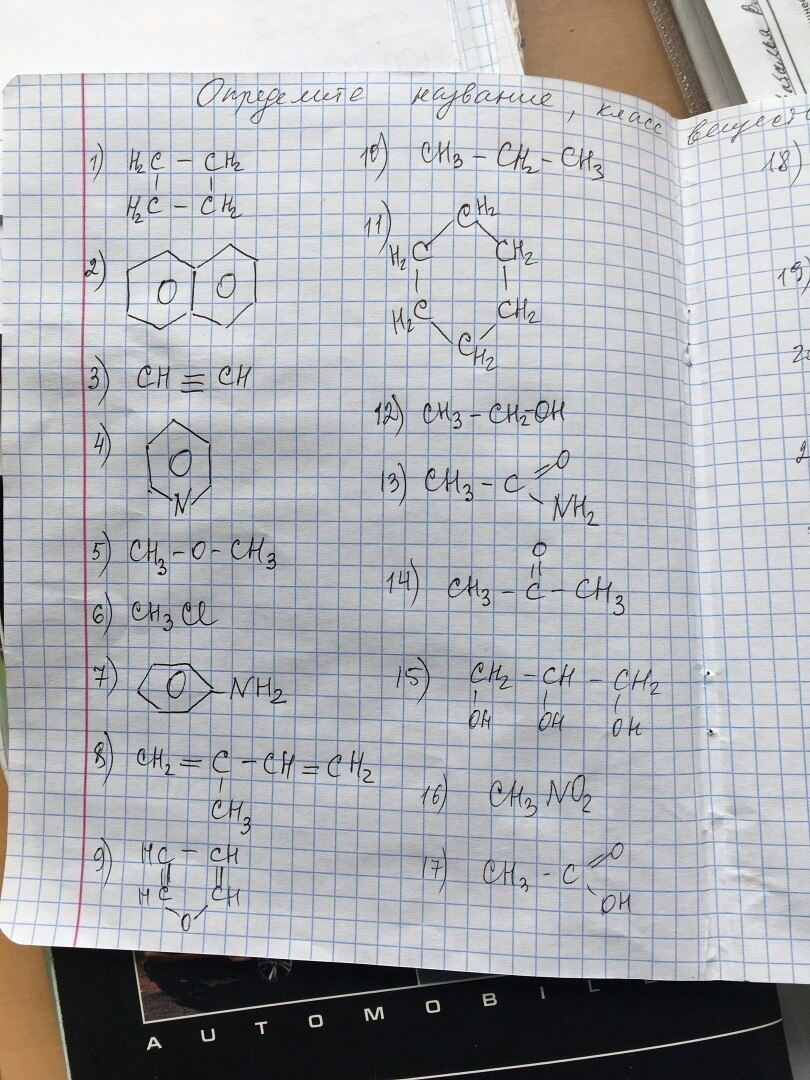 Определите название, класс веществ
1) H₂C – CH₂
H₂C – CH₂
2)
3) CH ≡ CH
4)
N
5) CH₃ – O – CH₃
6) CH₃Cl
7) – NH₂
8) CH₂ = C – CH = CH₂
CH₃
9) HC – CH
HC CH
O
10) CH₃ – CH₂ – CH₃
11) CH₂
H₂C CH₂
H₂C CH₂
CH₂
12) CH₃ – CH₂–OH
13) CH₃ – C O
NH₂
14) O
CH₃ – C – CH₃
15) CH₂ – CH – CH₂
OH OH OH
16) CH₃NO₂
17) CH₃ – C O
OH
18)
19)
AUTOMOBIL